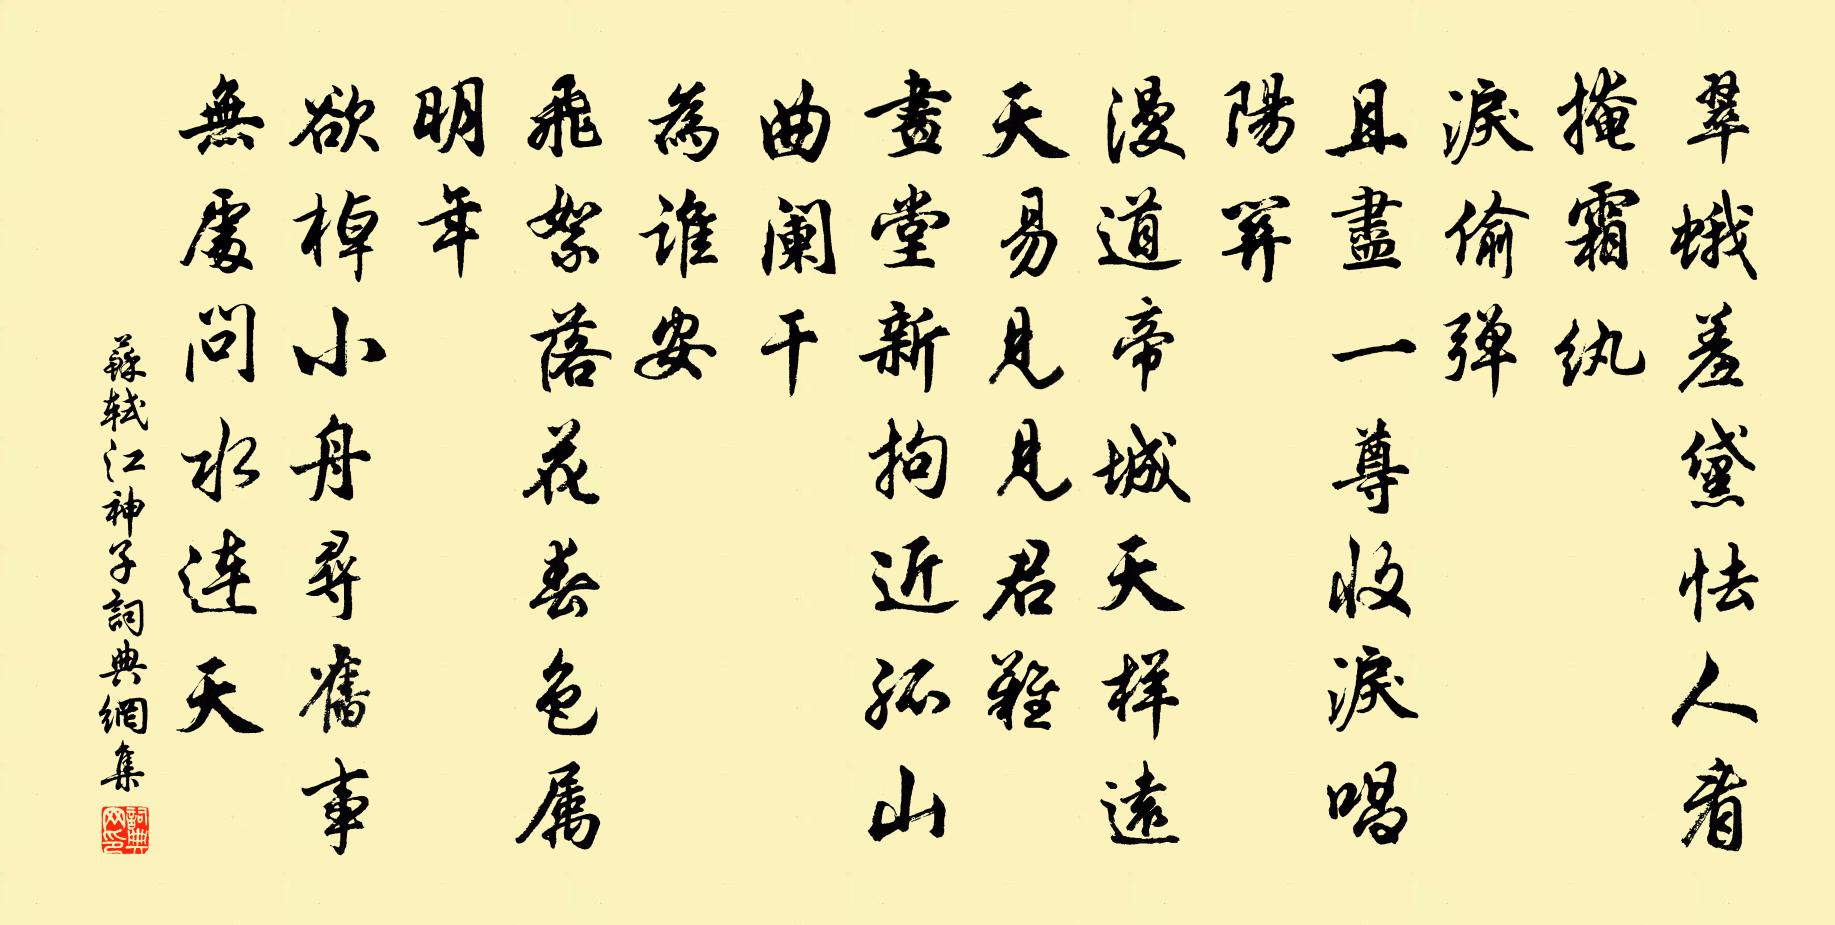 翠蛾羞黛怯人看
掩霜纨
淚偷弹
且盡一尊收淚唱
陽關
漫道帝城天样遠
天易見見君難
畫堂新拘近孤山
曲阑干
為誰安
飛絮落花春色属
明年
欲棹小舟尋舊事
無處問水連天
蘇軾江神子詞典網集
詞典
网印